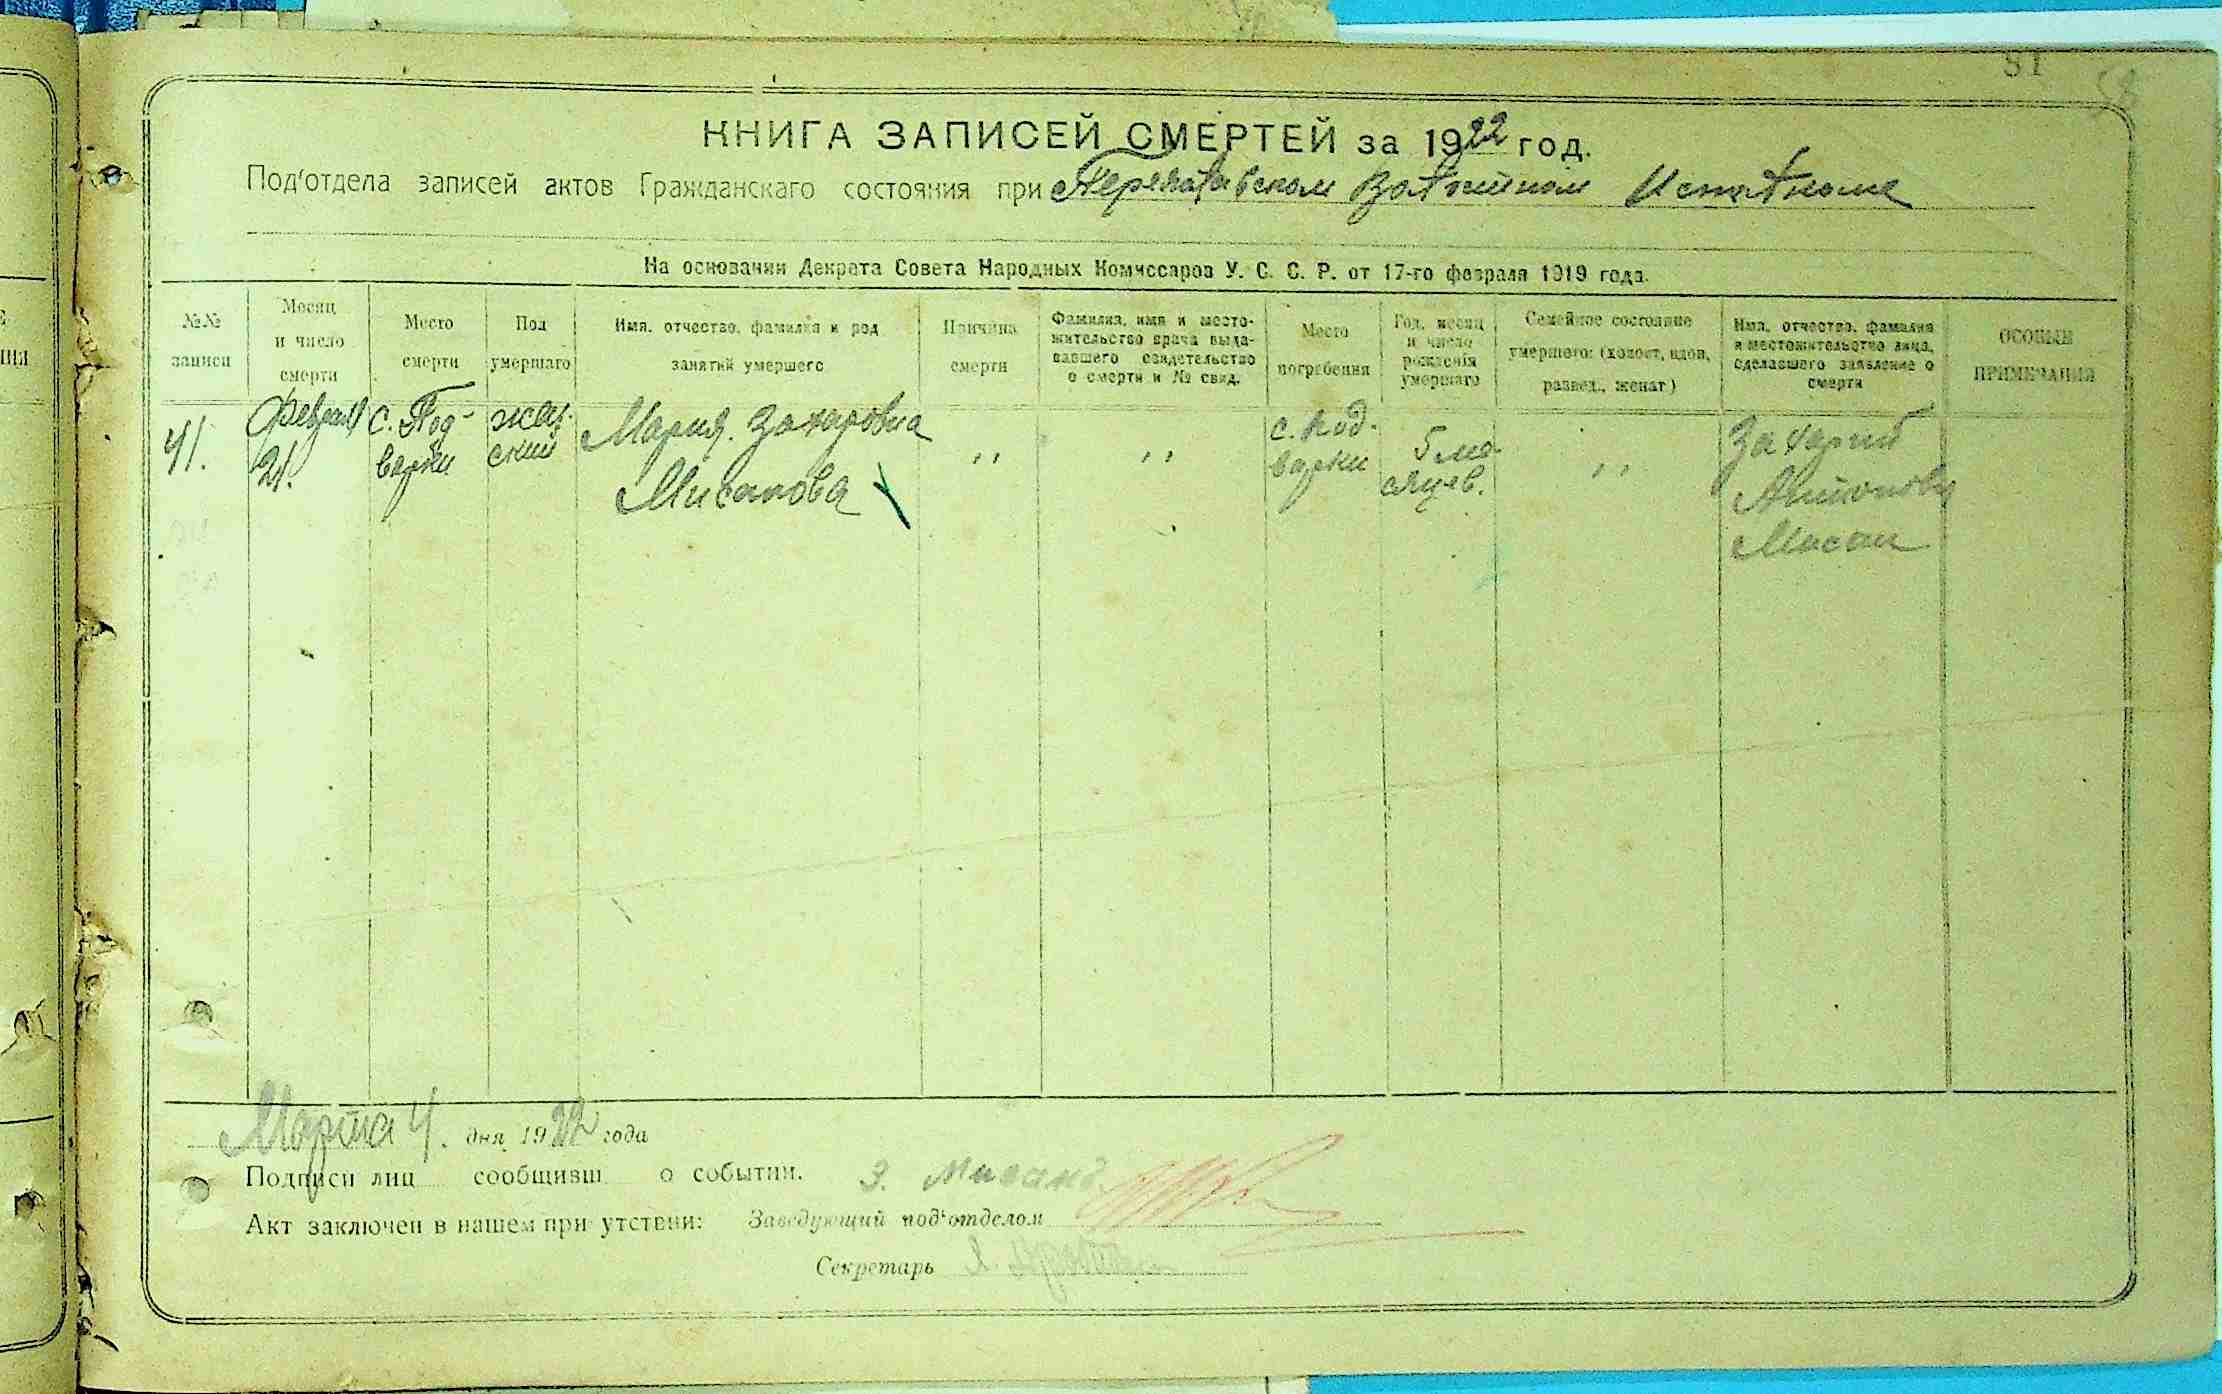 81
КНИГА ЗАПИСЕЙ СМЕРТЕЙ за 1922 год.
Под'отдела записей актов Гражданскаго состояния при Волостном
На основании Декрета Совета Народных Комиссаров У. С. С. Р. от 17-го февраля 1919 года.
№№ записи
Месяц и число смерти
Место смерти
Пол умершаго
Имя, отчество, фамилия и род занятий умершего
Причина смерти
Фамилия, имя и место-жительство врача выда-вавшего свидетельство о смерти и № свид.
Место погребения
Год, месяц и число рождения умершаго
Семейное состояние умершего: (холост, вдов, развед., женат)
Имя, отчество, фамилия и местожительство лица, сделавшего заявление о смерти
ОСОБЫЯ ПРИМЕЧАНИЯ
41.
Февраля
21.
с. Под-
варки
жен-
ский
Мария Захаровна
Мисанова
,,
,,
с. Под-
варки
5 ме-
сяцев.
,,
Захарий
Антонович
Мисан
Марта 4. дня 1922 года
Подписи лиц сообщивш о событии. З. Мисанъ
Акт заключен в нашем при утствии: Заведующий под'отделом
Секретарь